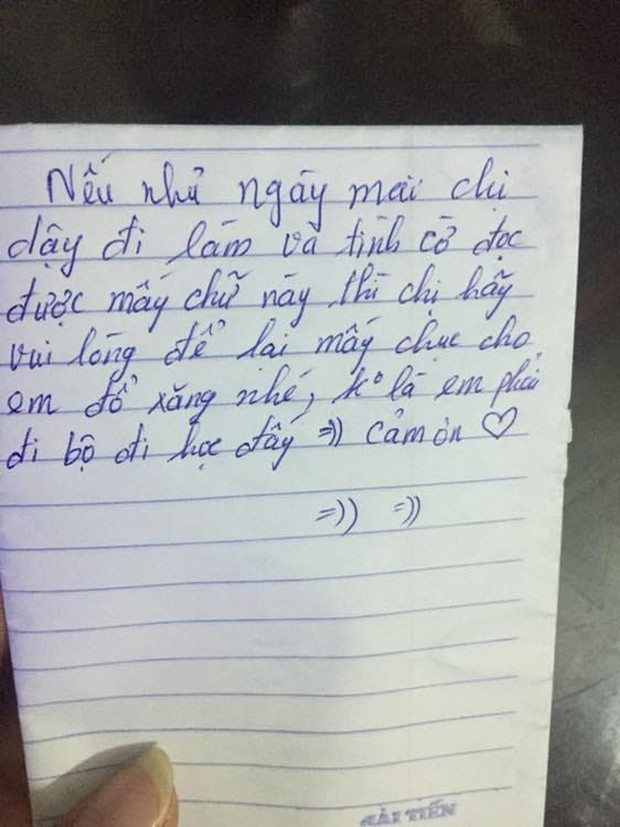 Nếu như ngày mai chị
dậy đi làm và tình cờ đọc
được mấy chữ này thì chị hãy
vui lòng để lại mấy chục cho
em đổ xăng nhé, k° là em phải
đi bộ đi học đấy =)) Cảm ơn ♡
=)) =))
HẢI TIẾN